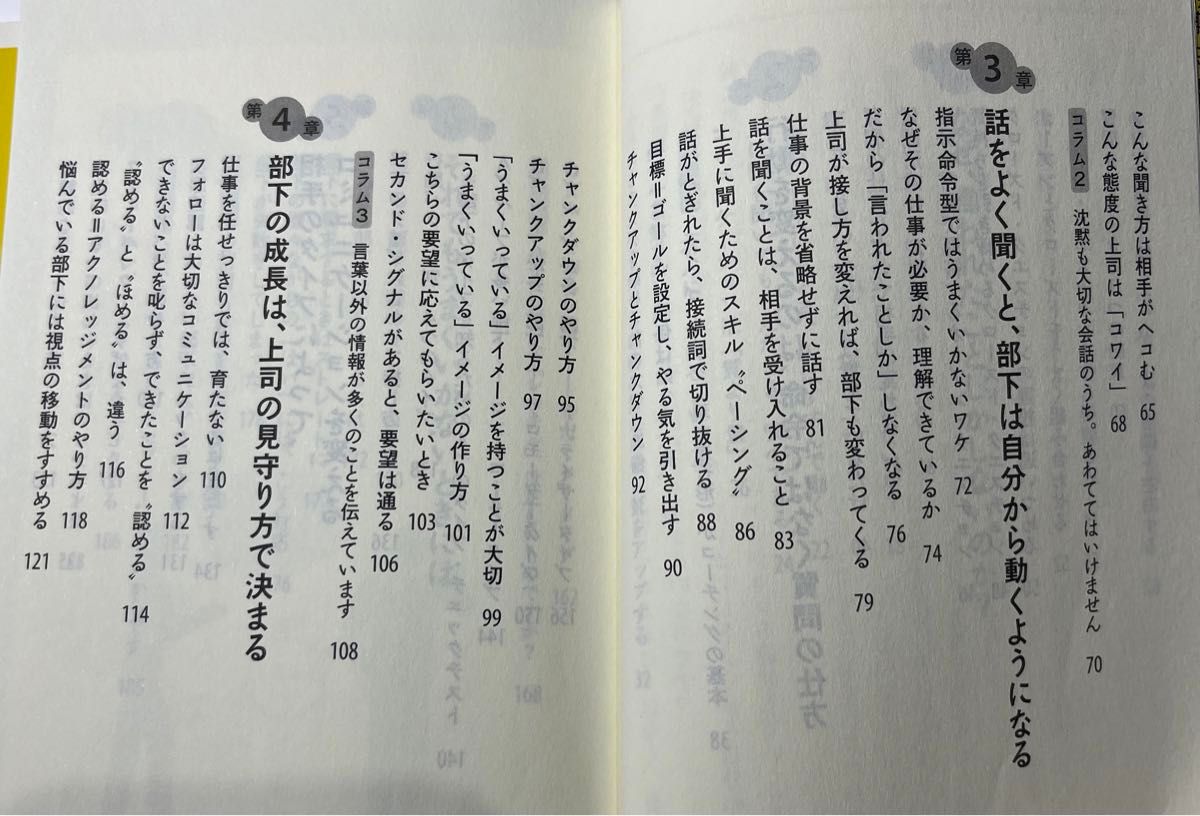 こんな聞き方は相手がヘコむ 65
こんな態度の上司は「コワイ」 68
コラム2 沈黙も大切な会話のうち。あわててはいけません 70
第3章 話をよく聞くと、部下は自分から動くようになる
指示命令型ではうまくいかないワケ 72
なぜその仕事が必要か、理解できているか 74
だから「言われたことしか」しなくなる 76
上司が接し方を変えれば、部下も変わってくる 79
仕事の背景を省略せずに話す 81
話を聞くことは、相手を受け入れること 83
上手に聞くためのスキル〝ペーシング〟 86
話がとぎれたら、接続詞で切り抜ける 88
目標=ゴールを設定し、やる気を引き出す 90
チャンクアップとチャンクダウン 92
チャンクダウンのやり方 95
チャンクアップのやり方 97
「うまくいっている」イメージを持つことが大切 99
「うまくいっている」イメージの作り方 101
こちらの要望に応えてもらいたいとき 103
セカンド・シグナルがあると、要望は通る 106
コラム3 言葉以外の情報が多くのことを伝えています 108
第4章 部下の成長は、上司の見守り方で決まる
仕事を任せっきりでは、育たない 110
フォローは大切なコミュニケーション 112
できないことを叱らず、できたことを〝認める〟 114
〝認める〟と〝ほめる〟は、違う 116
認める=アクノレッジメントのやり方 118
悩んでいる部下には視点の移動をすすめる 121